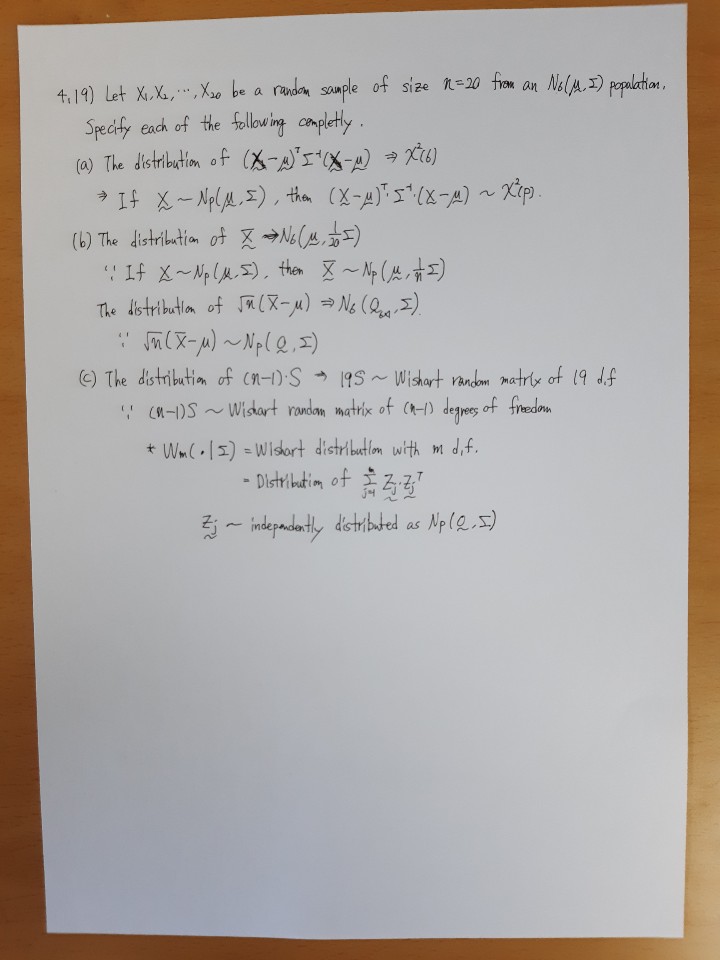 4.19) Let X₁, X₂, ⋯, X₂₀ be a random sample of size n=20 from an N₆(μ, Σ) population.
Specify each of the following completly.
(a) The distribution of (X-μ)ᵀΣ⁻¹(X-μ) ⇒ χ²(6)
⇒ If X ~ Np(μ, Σ), then (X-μ)ᵀ·Σ⁻¹·(X-μ) ~ χ²(p).
(b) The distribution of X̄ ⇒ N₆(μ, 1/20 Σ)
∵ If X ~ Np(μ, Σ), then X̄ ~ Np(μ, 1/n Σ)
The distribution of √n(X̄-μ) ⇒ N₆(0₆ₓ₁, Σ).
∵ √n(X̄-μ) ~ Np(0, Σ)
(c) The distribution of (n-1)·S → 19S ~ Wishart random matrix of 19 d.f
∵ (n-1)S ~ Wishart random matrix of (n-1) degrees of freedom
* Wm(·|Σ) = Wishart distribution with m d.f.
= Distribution of Σⱼ₌₁ᵐ Zⱼ·Zⱼᵀ
Zⱼ ~ independently distributed as Np(0, Σ)